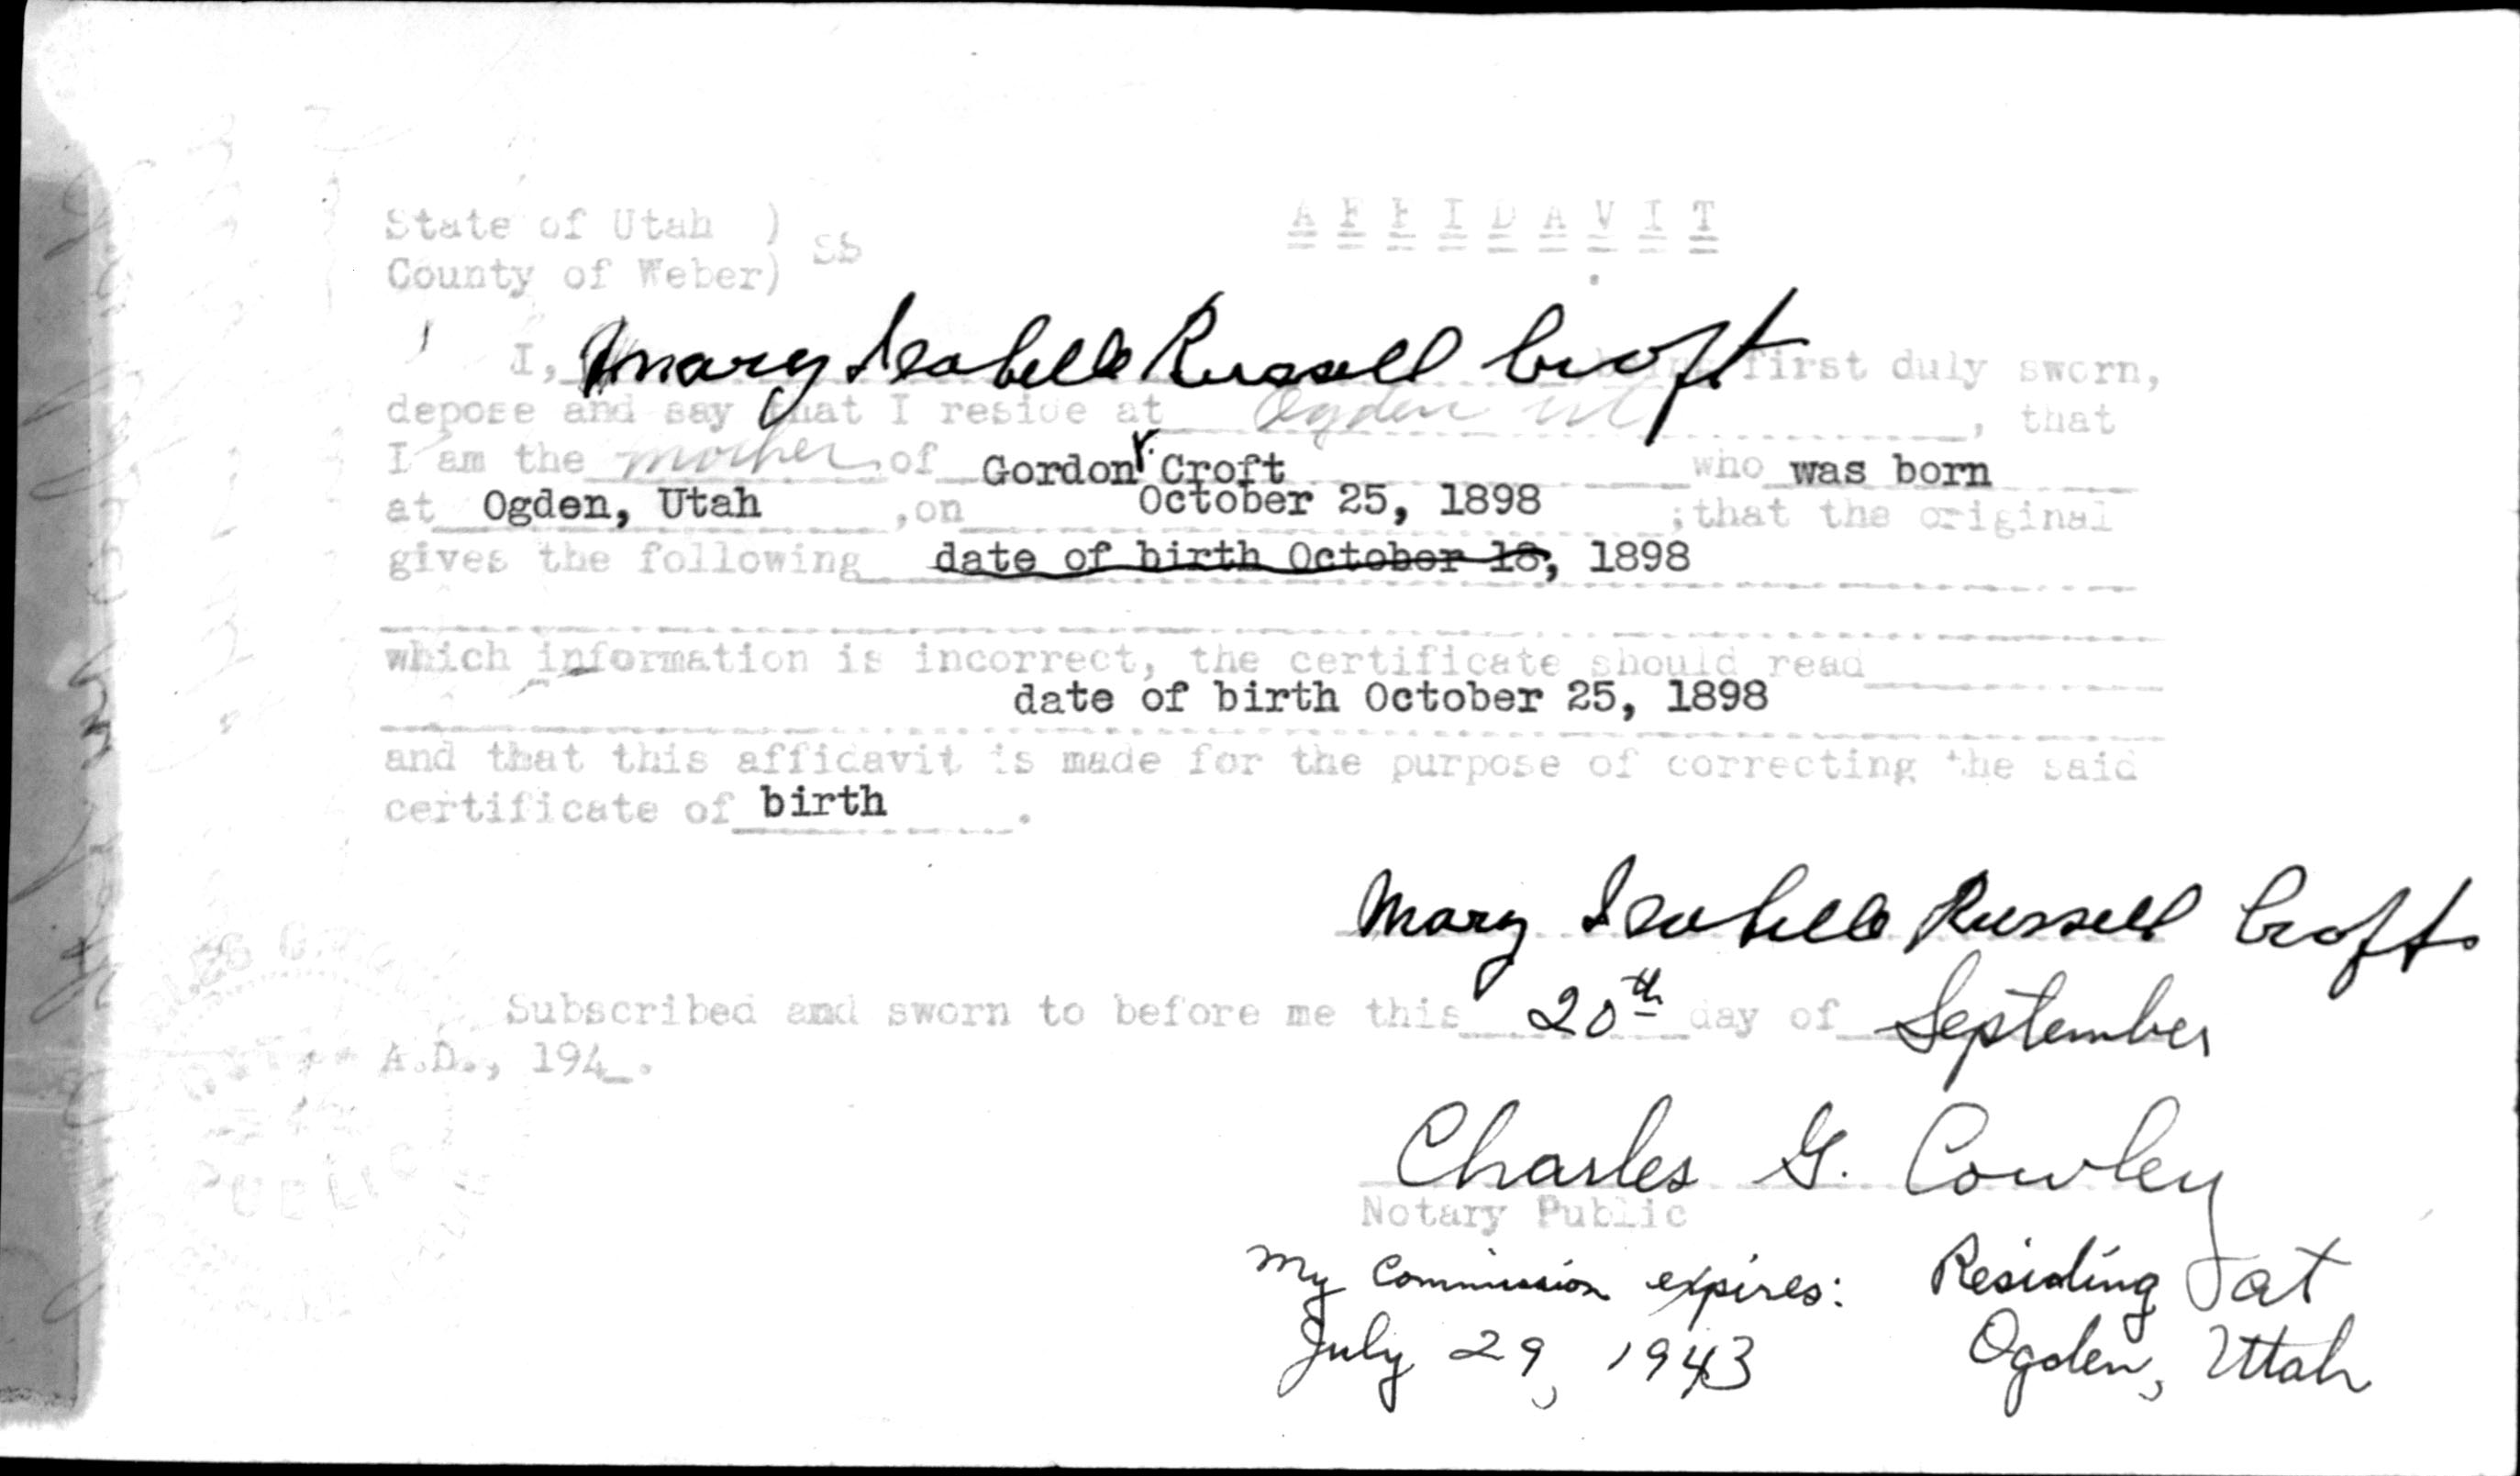 State of Utah ) SS
A F F I D A V I T
County of Weber)
I, Mary Isabelle Russell Croft being first duly sworn,
depose and say that I reside at Ogden Ut, that
I am the mother of Gordon r. Croft who was born
at Ogden, Utah ,on October 25, 1898 ;that the original
gives the following date of birth October 18, 1898
which information is incorrect, the certificate should read
date of birth October 25, 1898
and that this affidavit is made for the purpose of correcting the said
certificate of birth .
Mary Isabelle Russell Croft.
Subscribed and sworn to before me this 20th day of September
A.D., 194_.
Charles G. Cowley
Notary Public
My Commission expires: Residing at
July 29, 1943 Ogden, Utah
PUBLIC